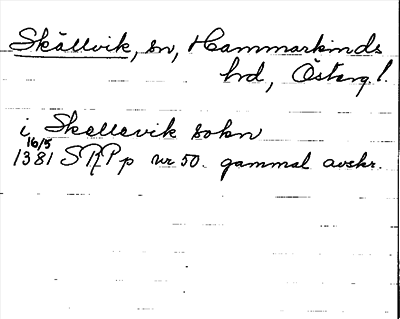 Skällvik, sn, Hammarkinds
hd, Österg!.
i Skellevik sokn
16/5
1381 SRAP p nr 50. gammal avskr.